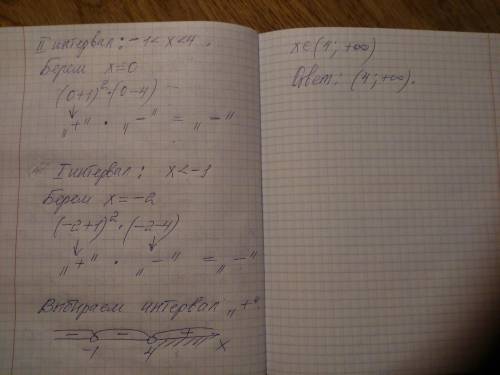 II интервал: -1<x<4.
Берем x=0
(0+1)²·(0-4)
„+" · „-" = „-"
I интервал: x<-1
Берем x=-2
(-2+1)²·(-2-4)
„+" · „-" = „-"
Выбираем интервал „+"
- - +
-1 4 x
x∈(4; +∞)
Ответ: (4; +∞).